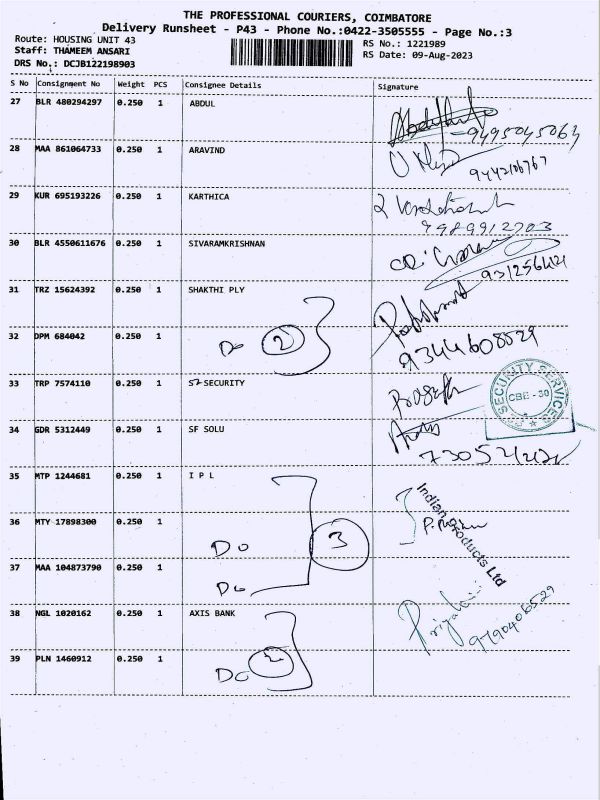 THE PROFESSIONAL COURIERS, COIMBATORE
Delivery Runsheet - P43 - Phone No.:0422-3505555 - Page No.:3
Route: HOUSING UNIT 43
Staff: THAMEEM ANSARI
DRS No.: DCJB122198903
RS No.: 1221989
RS Date: 09-Aug-2023
S No Consignment No Weight PCS Consignee Details Signature
27 BLR 480294297 0.250 1 ABDUL
9495045064
28 MAA 861064733 0.250 1 ARAVIND
9442106767
29 KUR 695193226 0.250 1 KARTHICA
9989912703
30 BLR 4550611676 0.250 1 SIVARAMKRISHNAN
31 TRZ 15624392 0.250 1 SHAKTHI PLY
32 DPM 684042 0.250 1 Do 2
9344608529
33 TRP 7574110 0.250 1 S7 SECURITY
SECURITY SERVICES
CBE - 30
34 GDR 5312449 0.250 1 SF SOLU
35 MTP 1244681 0.250 1 I P L
Indian Products Ltd
36 MTY 17898300 0.250 1 Do 3
37 MAA 104873790 0.250 1 Do
38 NGL 1020162 0.250 1 AXIS BANK
9790406529
39 PLN 1460912 0.250 1 Do 2